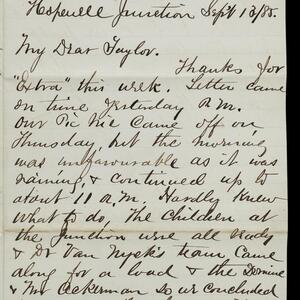 Hopewell Junction Sept 13/85.
My Dear Taylor.
Thanks for
"Extra" this week. Letter came
on time yesterday P.M.
Our Pic Nic came off on
Thursday, but the morning
was unfavourable as it was
raining, & continued up to
about 11 A.M. Hardly knew
what to do. The Children at
the Junction were all ready
& Dr Van Wyck's team came
along for a load & the Domine
& Mr Ackerman So we concluded